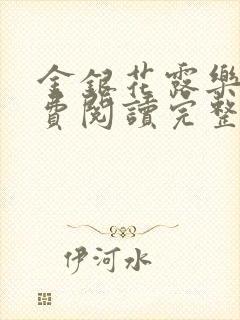 金銀花露樂
費閱讀完整
伊河水